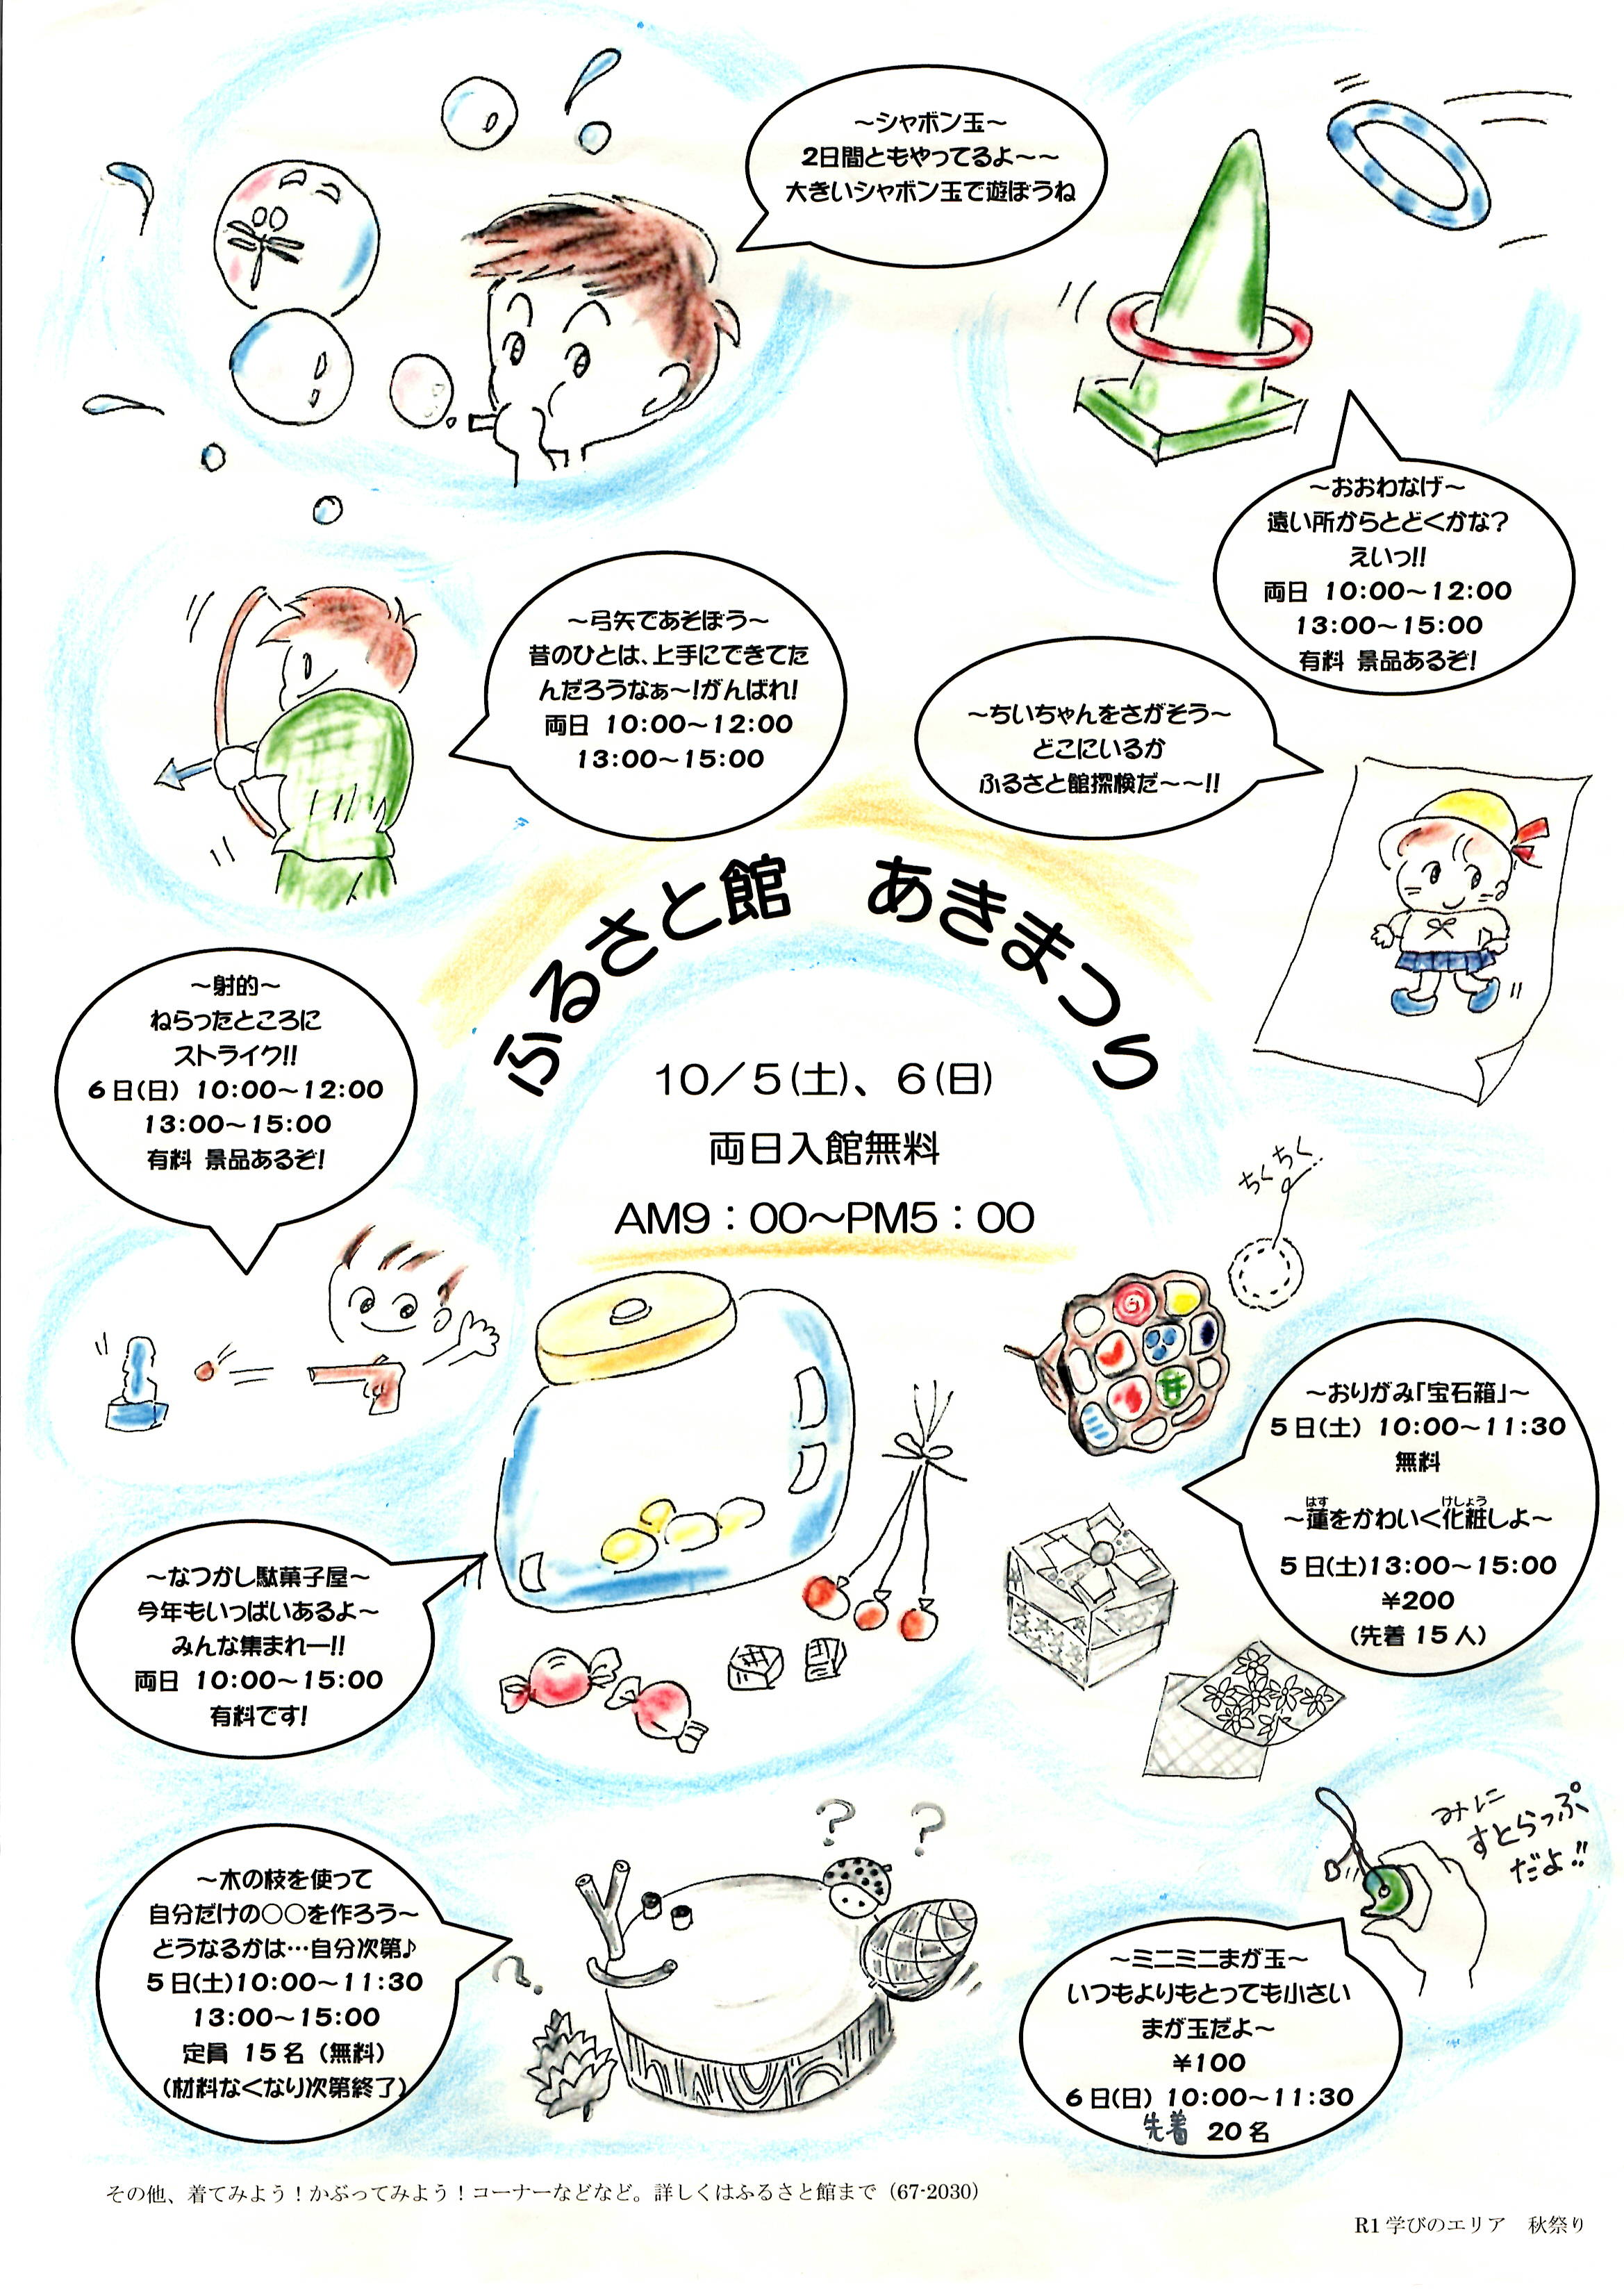 ～シャボン玉～
2日間ともやってるよ～～
大きいシャボン玉で遊ぼうね
～おおわなげ～
遠い所からとどくかな？
えいっ!!
両日 10:00～12:00
13:00～15:00
有料 景品あるぞ!
～弓矢であそぼう～
昔のひとは、上手にできてた
んだろうなぁ～!がんばれ!
両日 10:00～12:00
13:00～15:00
～ちいちゃんをさがそう～
どこにいるか
ふるさと館探検だ～～!!
ふるさと館 あきまつり
10／5(土)、6(日)
両日入館無料
AM9：00～PM5：00
～射的～
ねらったところに
ストライク!!
6日(日) 10:00～12:00
13:00～15:00
有料 景品あるぞ!
ちくちく
～おりがみ「宝石箱」～
5日(土) 10:00～11:30
無料
はす けしょう
～蓮をかわいく化粧しよ～
5日(土)13:00～15:00
¥200
(先着 15人)
～なつかし駄菓子屋～
今年もいっぱいあるよ～
みんな集まれー!!
両日 10:00～15:00
有料です!
～木の枝を使って
自分だけの○○を作ろう～
どうなるかは…自分次第♪
5日(土)10:00～11:30
13:00～15:00
定員 15名 (無料)
(材料なくなり次第終了)
? ?
?
みに
すとらっぷ
だよ!!
～ミニミニまが玉～
いつもよりもとっても小さい
まが玉だよ～
¥100
6日(日) 10:00～11:30
先着 20名
その他、着てみよう！かぶってみよう！コーナーなどなど。詳しくはふるさと館まで（67-2030）
R1 学びのエリア 秋祭り